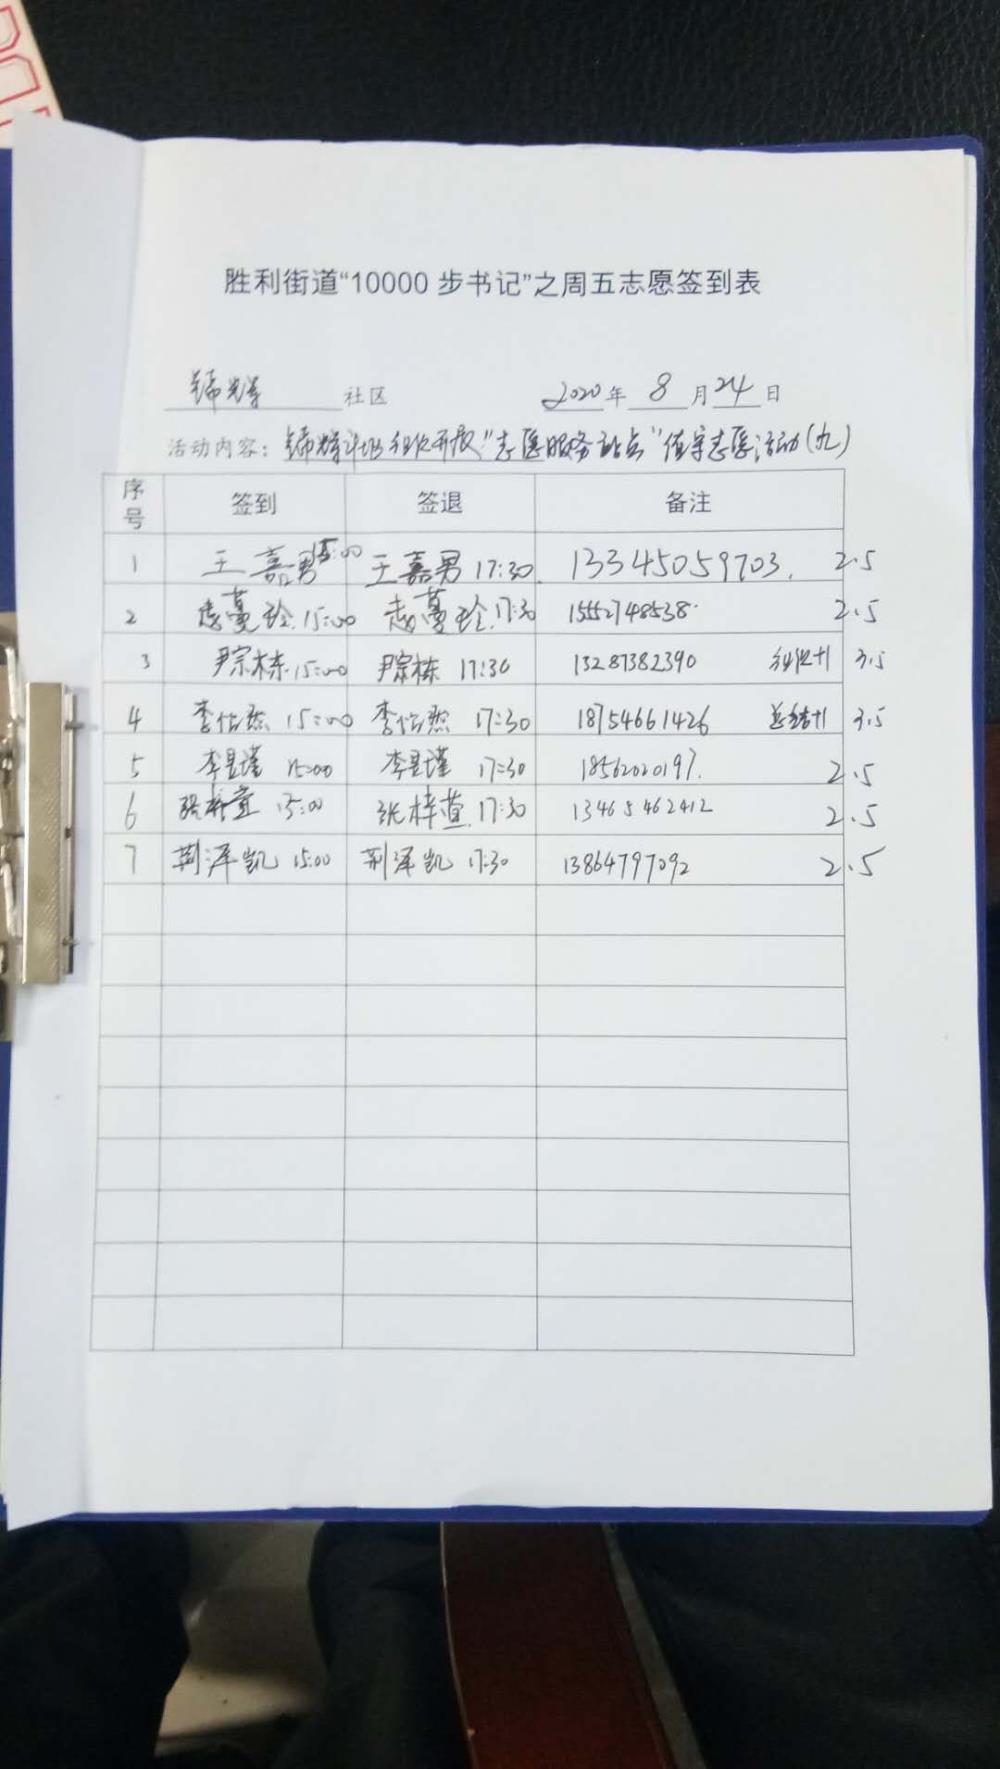 胜利街道“10000 步书记”之周五志愿签到表
锦辉 社区 2020 年 8 月 24 日
活动内容：锦辉社区组织开展“志愿服务站点”值守志愿活动(九)
序号 签到 签退 备注
1 王嘉男 15:00 王嘉男 17:30 13345059703. 2.5
2 赵蔓玲 15:00 赵蔓玲 17:30 15552748538 2.5
3 尹宗栋 15:00 尹宗栋 17:30 13287382390 3.5
4 李怡然 15:00 李怡然 17:30 18754661426 总结+1 3.5
5 李昱瑾 15:00 李昱瑾 17:30 18562020197. 2.5
6 张梓萱 15:00 张梓萱 17:30 13465462412 2.5
7 荆泽凯 15:00 荆泽凯 17:30 13864797092 2.5